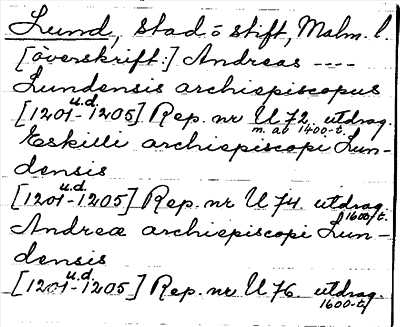 Lund, stad o stift, Malm. l.
[överskrift:] Andreas ----
Lundensis archiepiscopus
[1201-1205] u.d. Rep. nr U 72 utdrag.
m. av 1400-t.
Eskilli archiepiscopi Lun-
densis
[1201-1205] u.d. Rep. nr U 74 utdrag.
1600/t.
Andreæ archiepiscopi Lun-
densis
[1201-1205] u.d. Rep. nr U 76 utdrag.
1600-t/